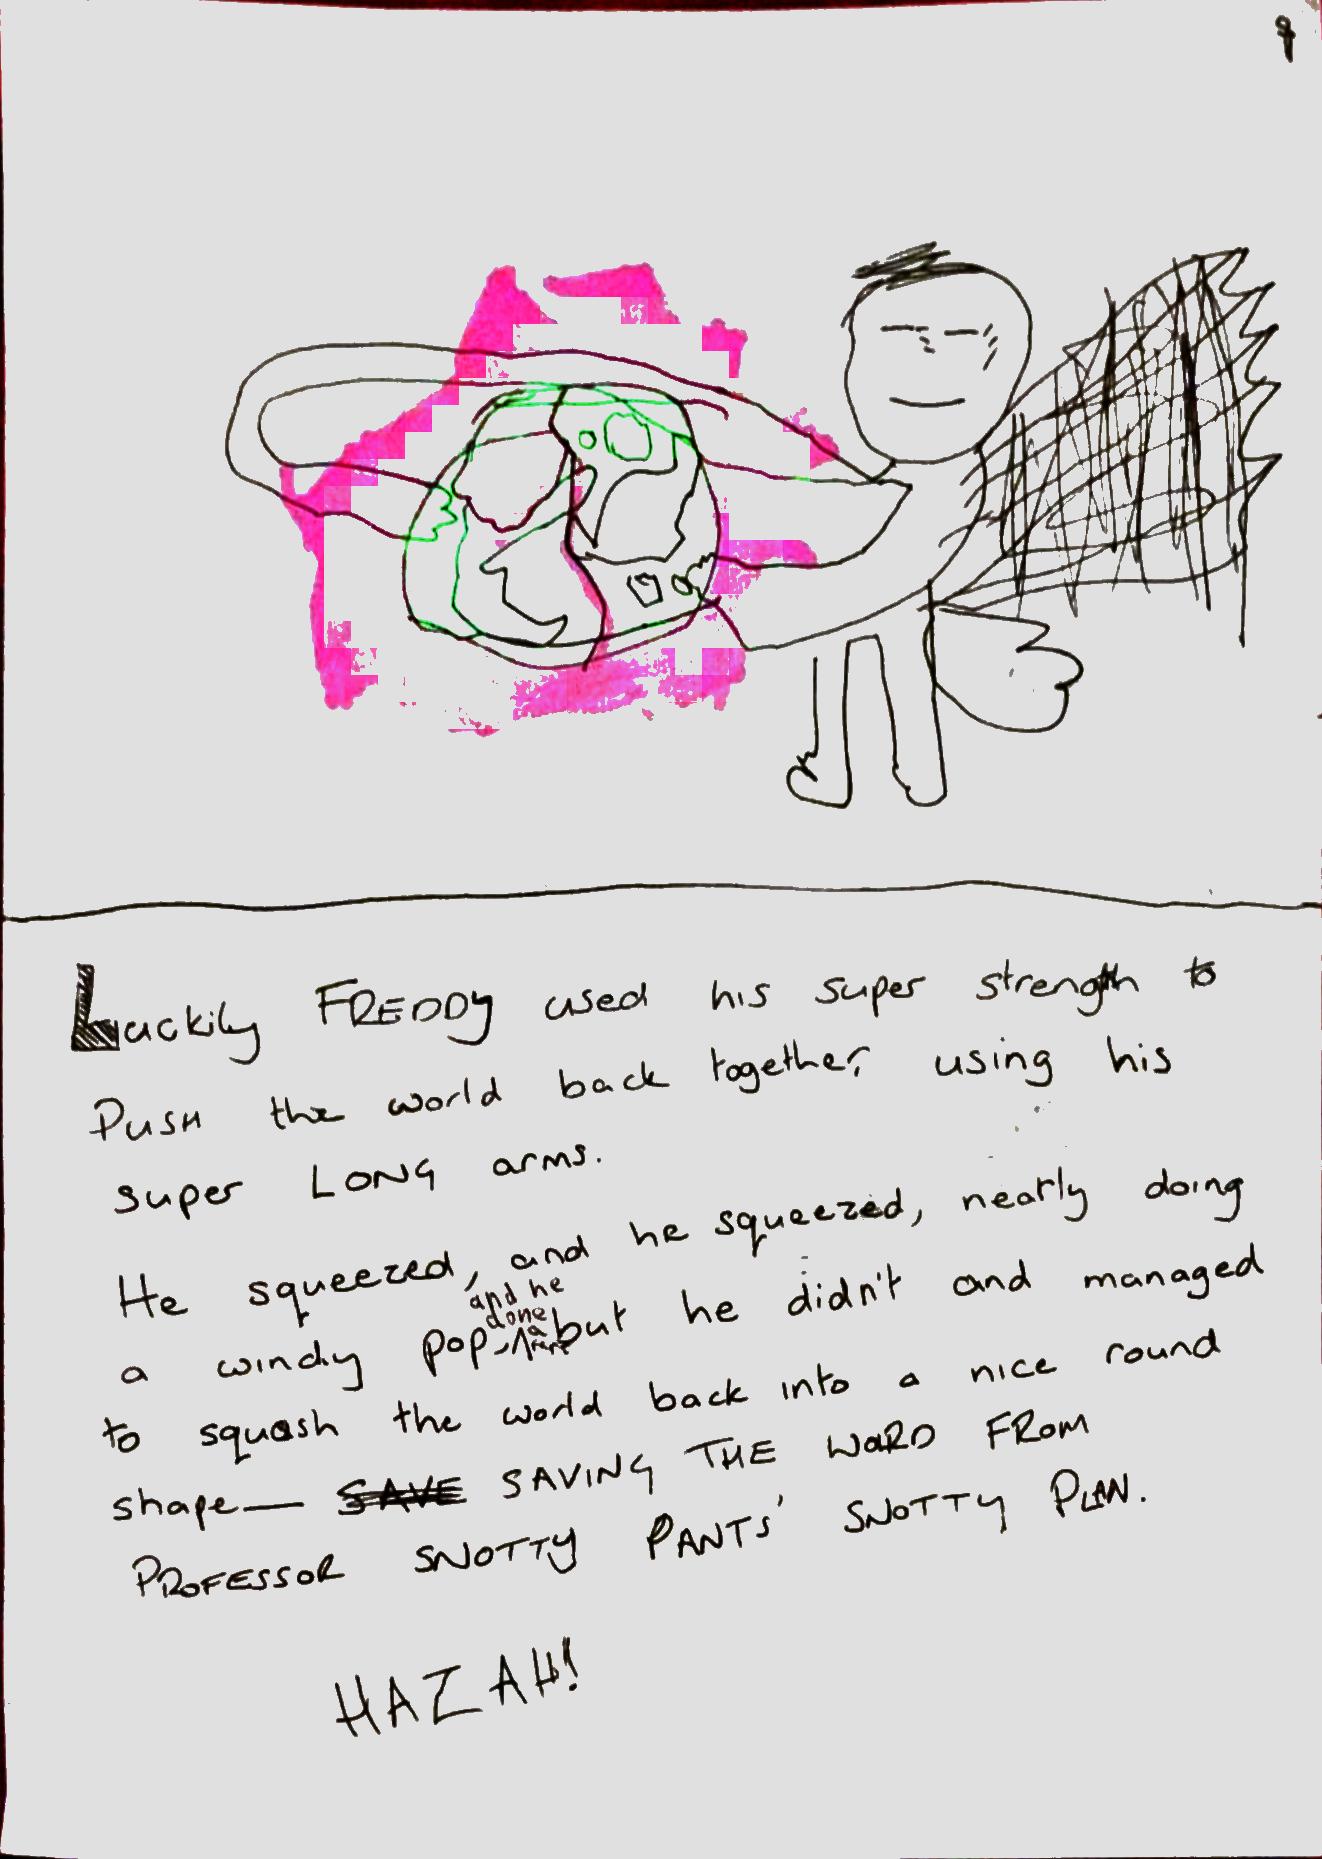 9
Luckily FREDDY used his super strength to
PUSH the world back together, using his
super LONG arms.
He squeezed, and he squeezed, neatly doing
and he
done
a
a windy pop, but he didn't and managed
to squash the world back into a nice round
shape— SAVE SAVING THE WORD FROM
PROFESSOR SNOTTY PANTS' SNOTTY PLAN.
HAZAH!